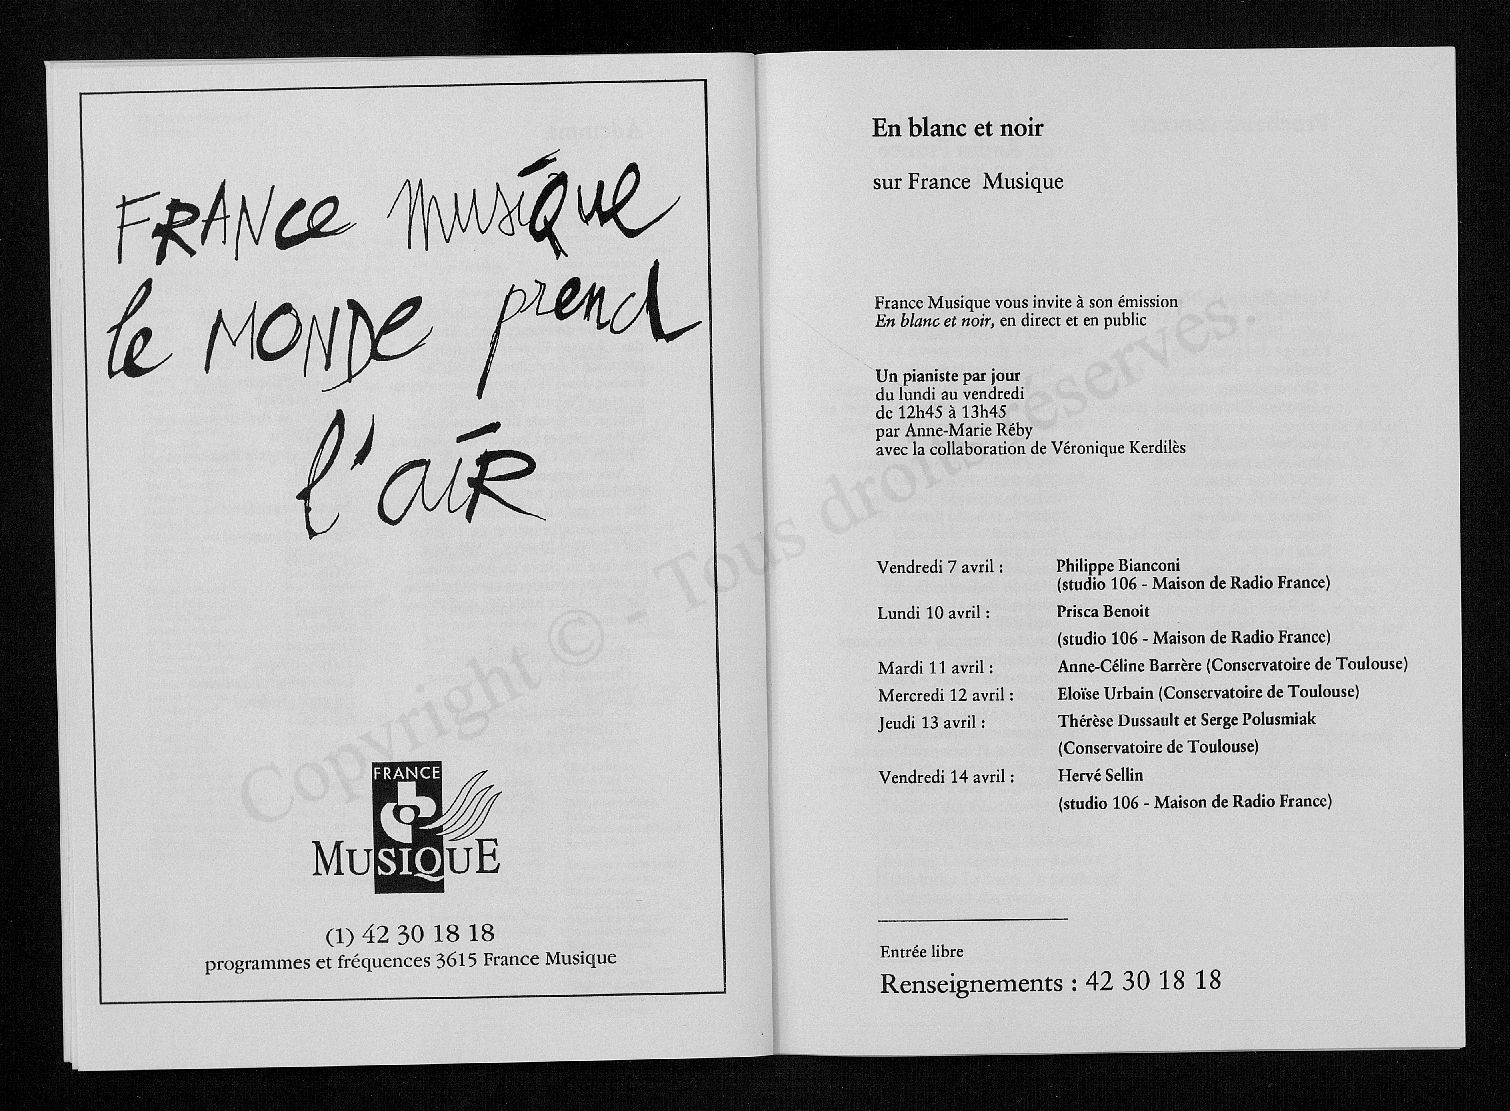 FRANCE MUSIQUE
le MONDE prend
l'aiR
FRANCE
MUSIQUE
(1) 42 30 18 18
programmes et fréquences 3615 France Musique
En blanc et noir
sur France Musique
France Musique vous invite à son émission
En blanc et noir, en direct et en public
Un pianiste par jour
du lundi au vendredi
de 12h45 à 13h45
par Anne-Marie Réby
avec la collaboration de Véronique Kerdilès
Vendredi 7 avril : Philippe Bianconi
(studio 106 - Maison de Radio France)
Lundi 10 avril : Prisca Benoit
(studio 106 - Maison de Radio France)
Mardi 11 avril : Anne-Céline Barrère (Conservatoire de Toulouse)
Mercredi 12 avril : Eloïse Urbain (Conservatoire de Toulouse)
Jeudi 13 avril : Thérèse Dussault et Serge Polusmiak
(Conservatoire de Toulouse)
Vendredi 14 avril : Hervé Sellin
(studio 106 - Maison de Radio France)
Entrée libre
Renseignements : 42 30 18 18
Copyright © - Tous droits réservés.